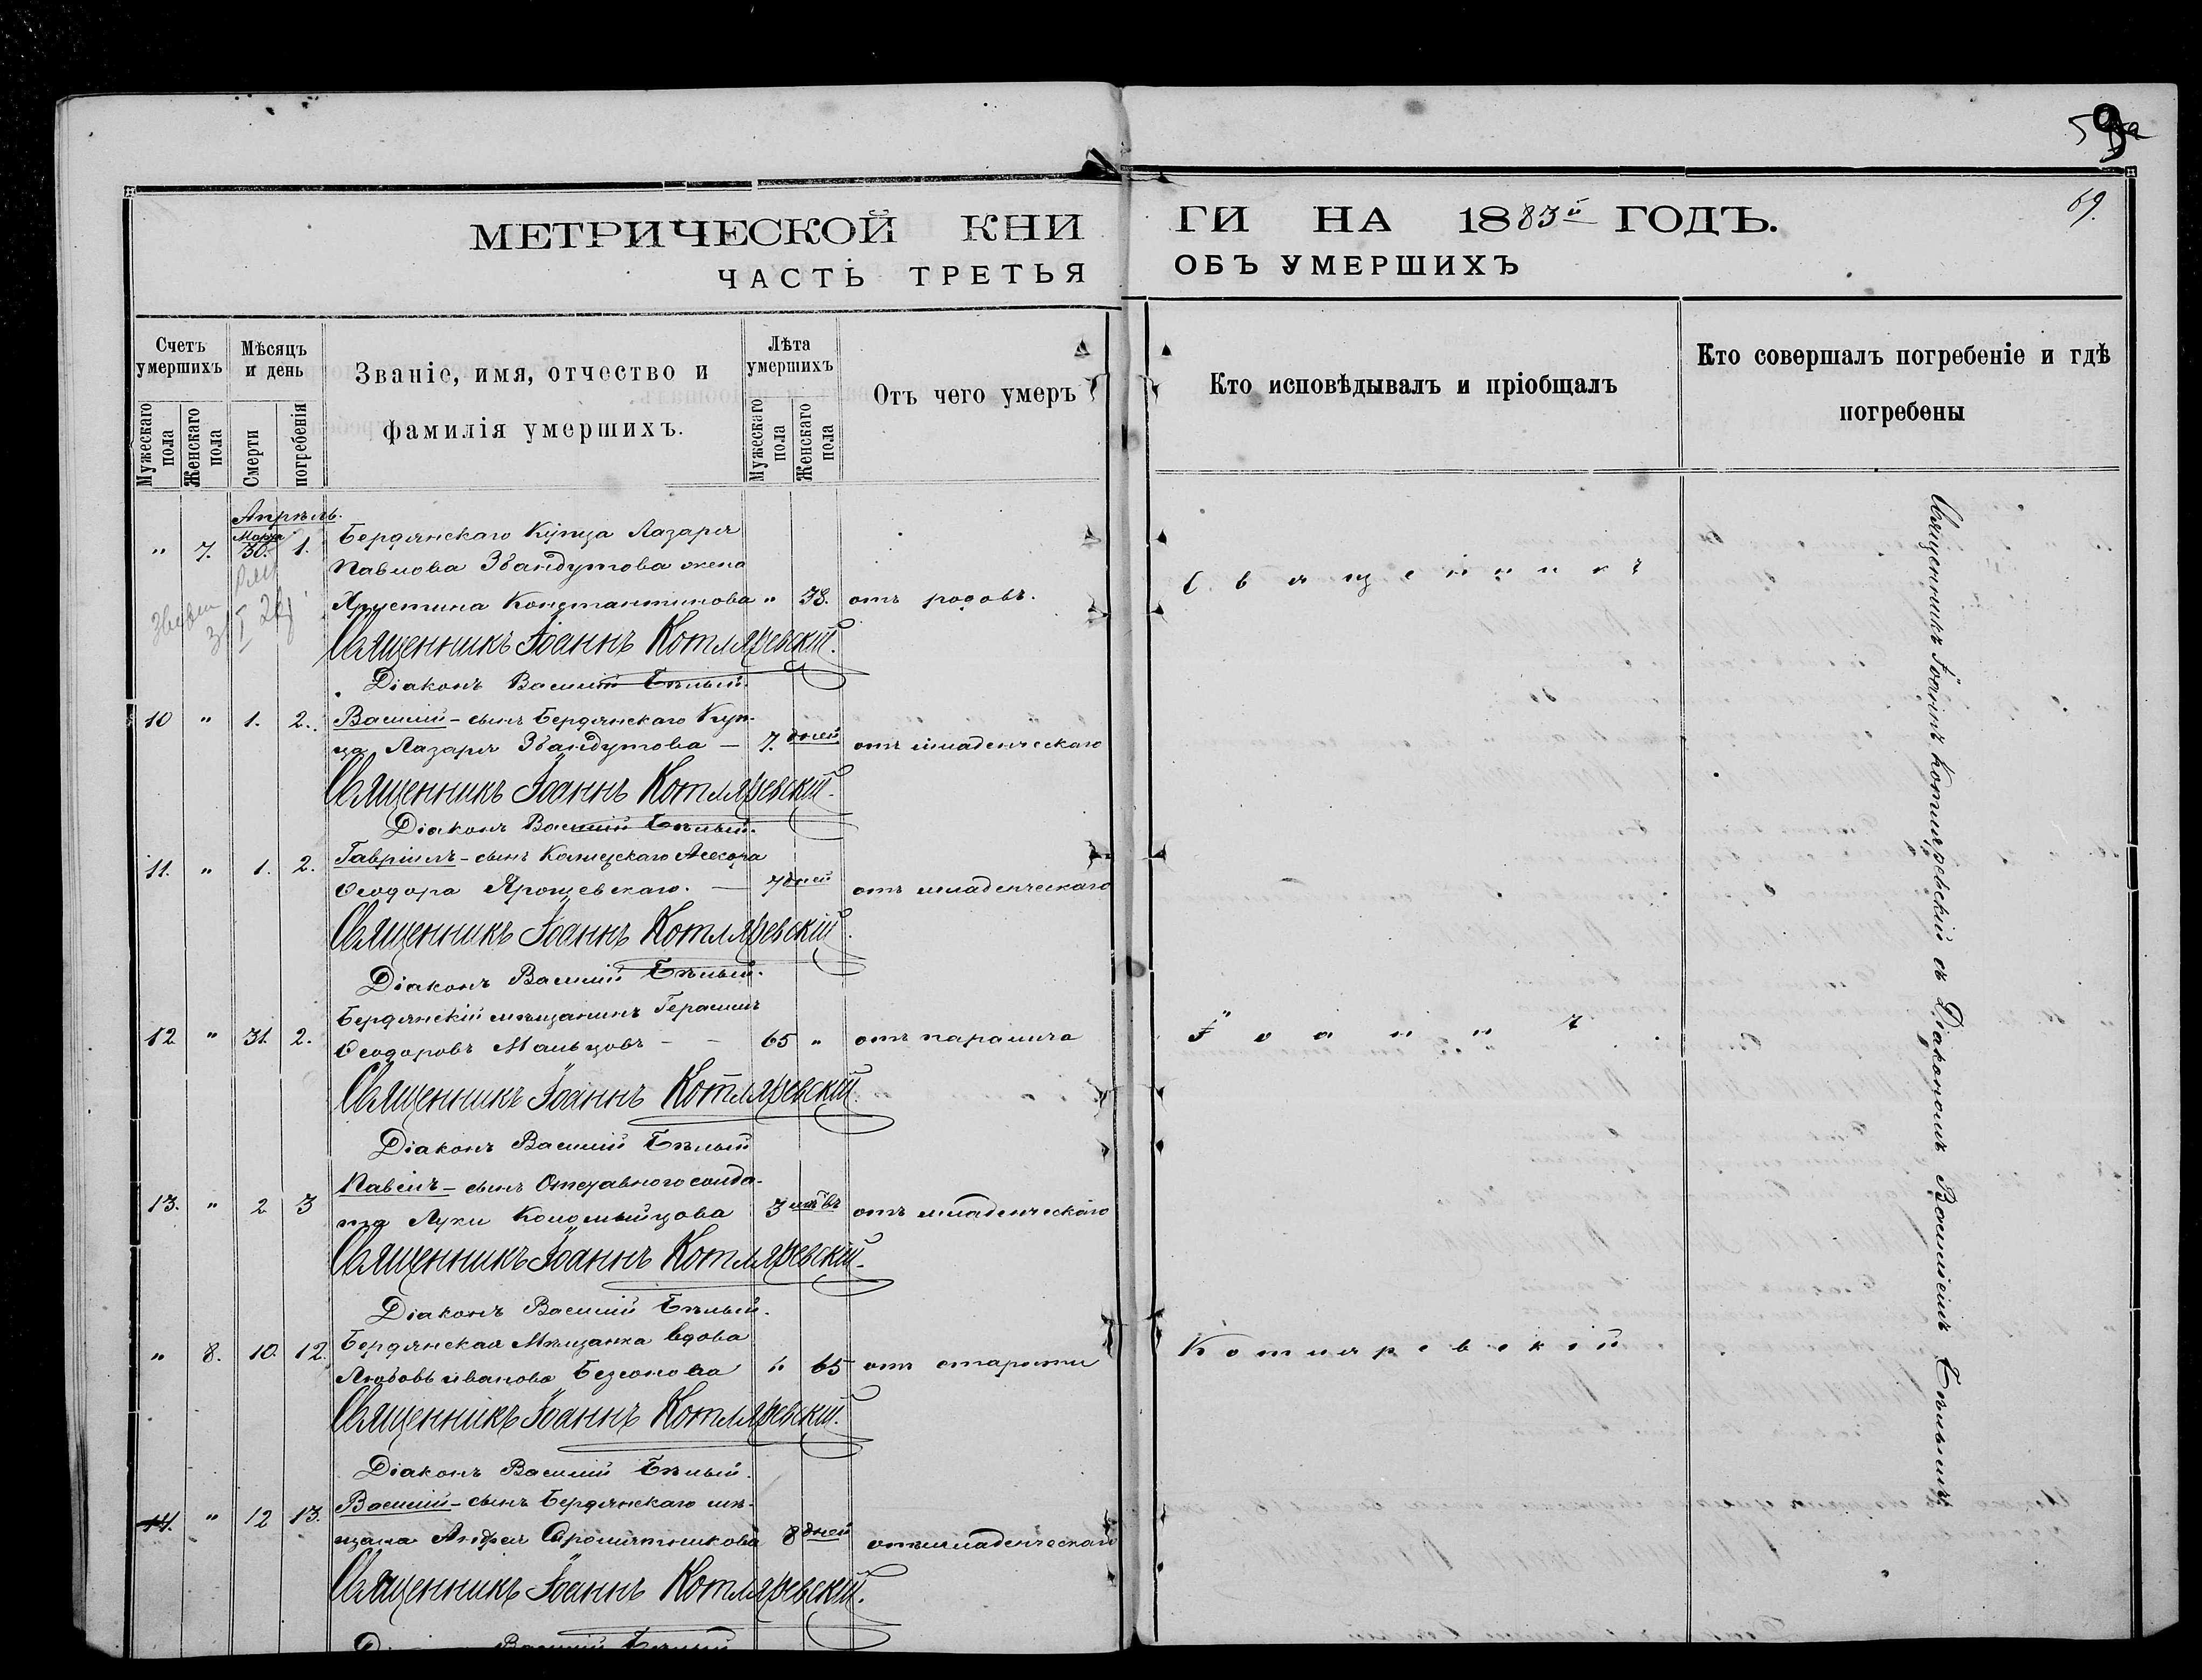 59
69.
МЕТРИЧЕСКОЙ КНИГИ НА 1883й ГОДЪ.
ЧАСТЬ ТРЕТЬЯ ОБЪ УМЕРШИХЪ
Счетъ умершихъ
Мѣсяцъ и день
Званіе, имя, отчество и фамилія умершихъ.
Лѣта умершихъ
Отъ чего умеръ
Кто исповѣдывалъ и пріобщалъ
Кто совершалъ погребеніе и гдѣ погребены
Мужескаго пола
Женскаго пола
Смерти
погребенія
Мужескаго пола
Женскаго пола
Апрѣль.
Марта
" 7. 30. 1. Бердянскаго Купца Лазаря
Павлова Звандутова жена
Христина Константинова " 38. отъ родовъ.
Священникъ Іоаннъ Котляревскій.
Діаконъ Василій Бѣлый.
10 " 1. 2. Василій - сынъ Бердянскаго Куп-
ца Лазаря Звандутова — 7. дней отъ младенческаго
Священникъ Іоаннъ Котляревскій.
Діаконъ Василій Бѣлый.
11. " 1. 2. Гавріилъ - сынъ Колежскаго Асесора
Ѳеодора Ярошевскаго. — 7 дней отъ младенческаго
Священникъ Іоаннъ Котляревскій.
Діаконъ Василій Бѣлый.
12 " 31. 2. Бердянскій мѣщанинъ Герасимъ
Ѳеодоровъ Мальцовъ - - 65 " отъ паралича
Священникъ Іоаннъ Котляревскій.
Діаконъ Василій Бѣлый
13. " 2 3 Павелъ - сынъ Отставного солда-
та Луки Коломыйцова 3 лѣтъ отъ младенческаго
Священникъ Іоаннъ Котляревскій.
Діаконъ Василій Бѣлый.
" 8. 10. 12. Бердянская Мѣщанка вдова
Любовь иванова Безсонова " 65 отъ старости
Священникъ Іоаннъ Котляревскій.
Діаконъ Василій Бѣлый.
14. " 12 13. Василій - сынъ Бердянскаго мѣ-
щана Андрея Сыромятникова 8 дней отъ младенческаго
Священникъ Іоаннъ Котляревскій.
Василій Бѣлый
Священникъ
Іоаннъ
Котляревскій
Священникъ Іоаннъ Котляревскій съ Діакономъ Василіемъ Бѣлымъ.